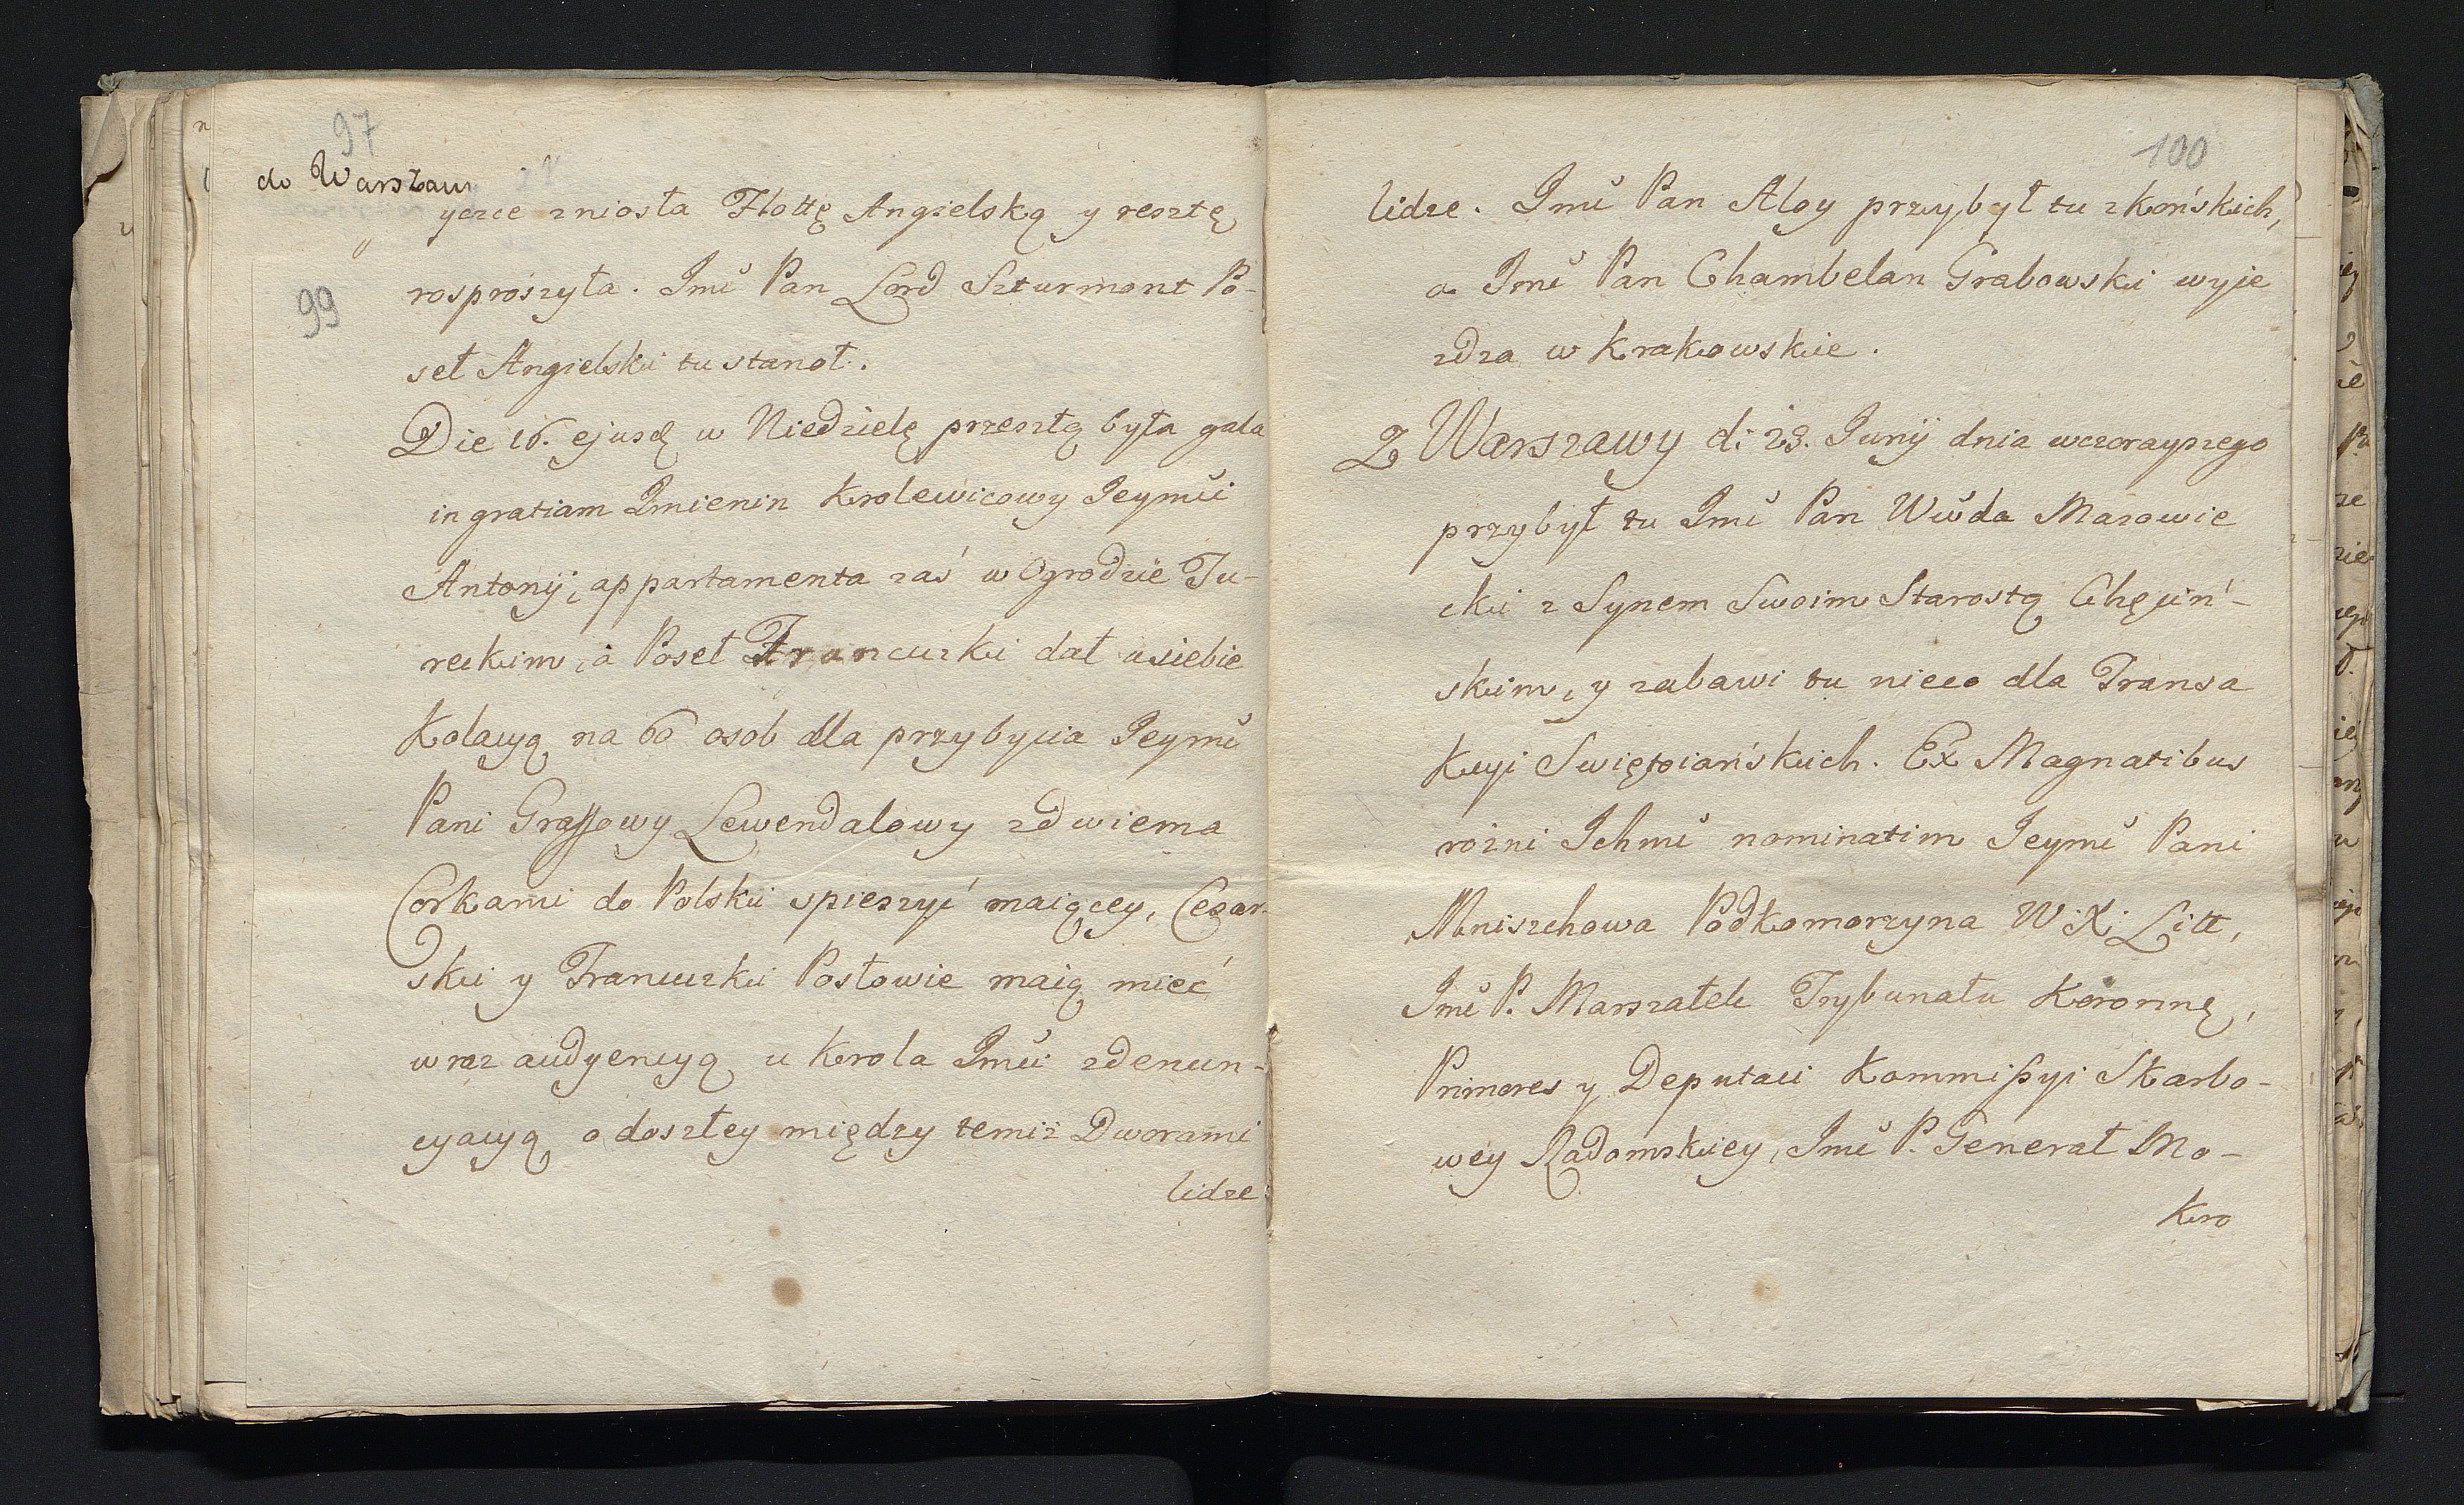 97
do Warszaw
yczce zniosła Flottę Angielską y resztę
99
rosproszyła. Jmć Pan Lord Szturmont Po-
seł Angielski tu stanoł.
Die 16. ejusd w Niedzielę przeszłą była gala
in gratiam Jmienin Krolewicowy Jeymći
Antonij, appartamenta zaś w Ogrodzie Tu-
reckim, a Poseł Francuzki dał u siebie
Kolacyą na 60 osob dla przybycia Jeymć
Pani Graffowy Lewendalowy z dwiema
Corkami do Polski spieszyć maiącey, Cesar-
ski y Francuzki Posłowie maią mieć
wraz audyencyą u Krola Jmći z denun-
cyacyą o doszłey między temiż Dworami
lidze
100
lidze. Jmć Pan Aloy przybył tu z Końskich,
a Jmć Pan Chambelan Grabowski wyje
zdza w Krakowskie.
Z Warszawy d: 23. Junij dnia wczorayszego
przybył tu Jmć Pan Wwda Mazowie
cki z Synem Swoim Starostą Chęciń-
skim, y zabawi tu nieco dla Transa
Kcyi Swiętoiańskich. Ex Magnatibus
rożni Ichmć nominatim Jeymć Pani
Mniszchowa Podkomorzyna W. X. Litt,
Jmć P. Marszałek Trybunału Koronnę,
Primores y Deputaci Kommißyi Skarbo-
wey Radomskiey, Jmć P. Generał Mo-
Kro